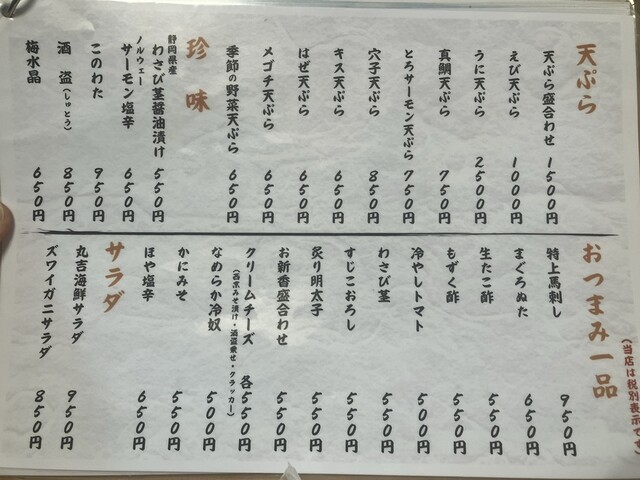 天ぷら
天ぷら盛合わせ 1500円
えび天ぷら 1000円
うに天ぷら 2500円
真鯛天ぷら 750円
とろサーモン天ぷら 750円
穴子天ぷら 850円
キス天ぷら 650円
はぜ天ぷら 650円
メゴチ天ぷら 650円
季節の野菜天ぷら 650円
珍味
静岡県産
わさび茎醤油漬け 550円
ノルウェー
サーモン塩辛 650円
このわた 950円
酒盗(しゅとう) 850円
梅水晶 650円
(当店は税別表示です)
おつまみ一品
特上馬刺し 950円
まぐろぬた 650円
生たこ酢 550円
もずく酢 550円
冷やしトマト 500円
わさび茎 550円
すじこおろし 550円
炙り明太子 550円
お新香盛合わせ 550円
クリームチーズ 各550円
(西京みそ漬け・酒盗乗せ・クラッカー)
なめらか冷奴 500円
かにみそ 550円
ほや塩辛 650円
サラダ
丸吉海鮮サラダ 950円
ズワイガニサラダ 850円